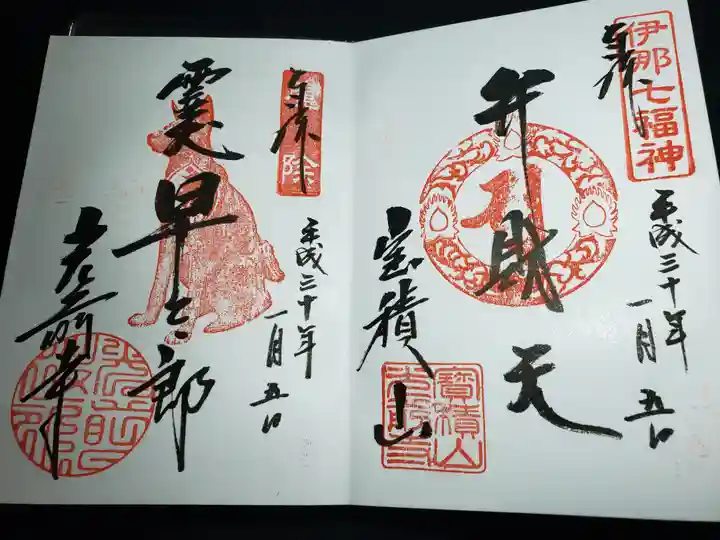 伊那七福神
奉拝
平成三十年
一月五日
弁財天
宝積山
寳積山
光前寺
奉拝
平成三十年
一月五日
霊早太郎
光前寺